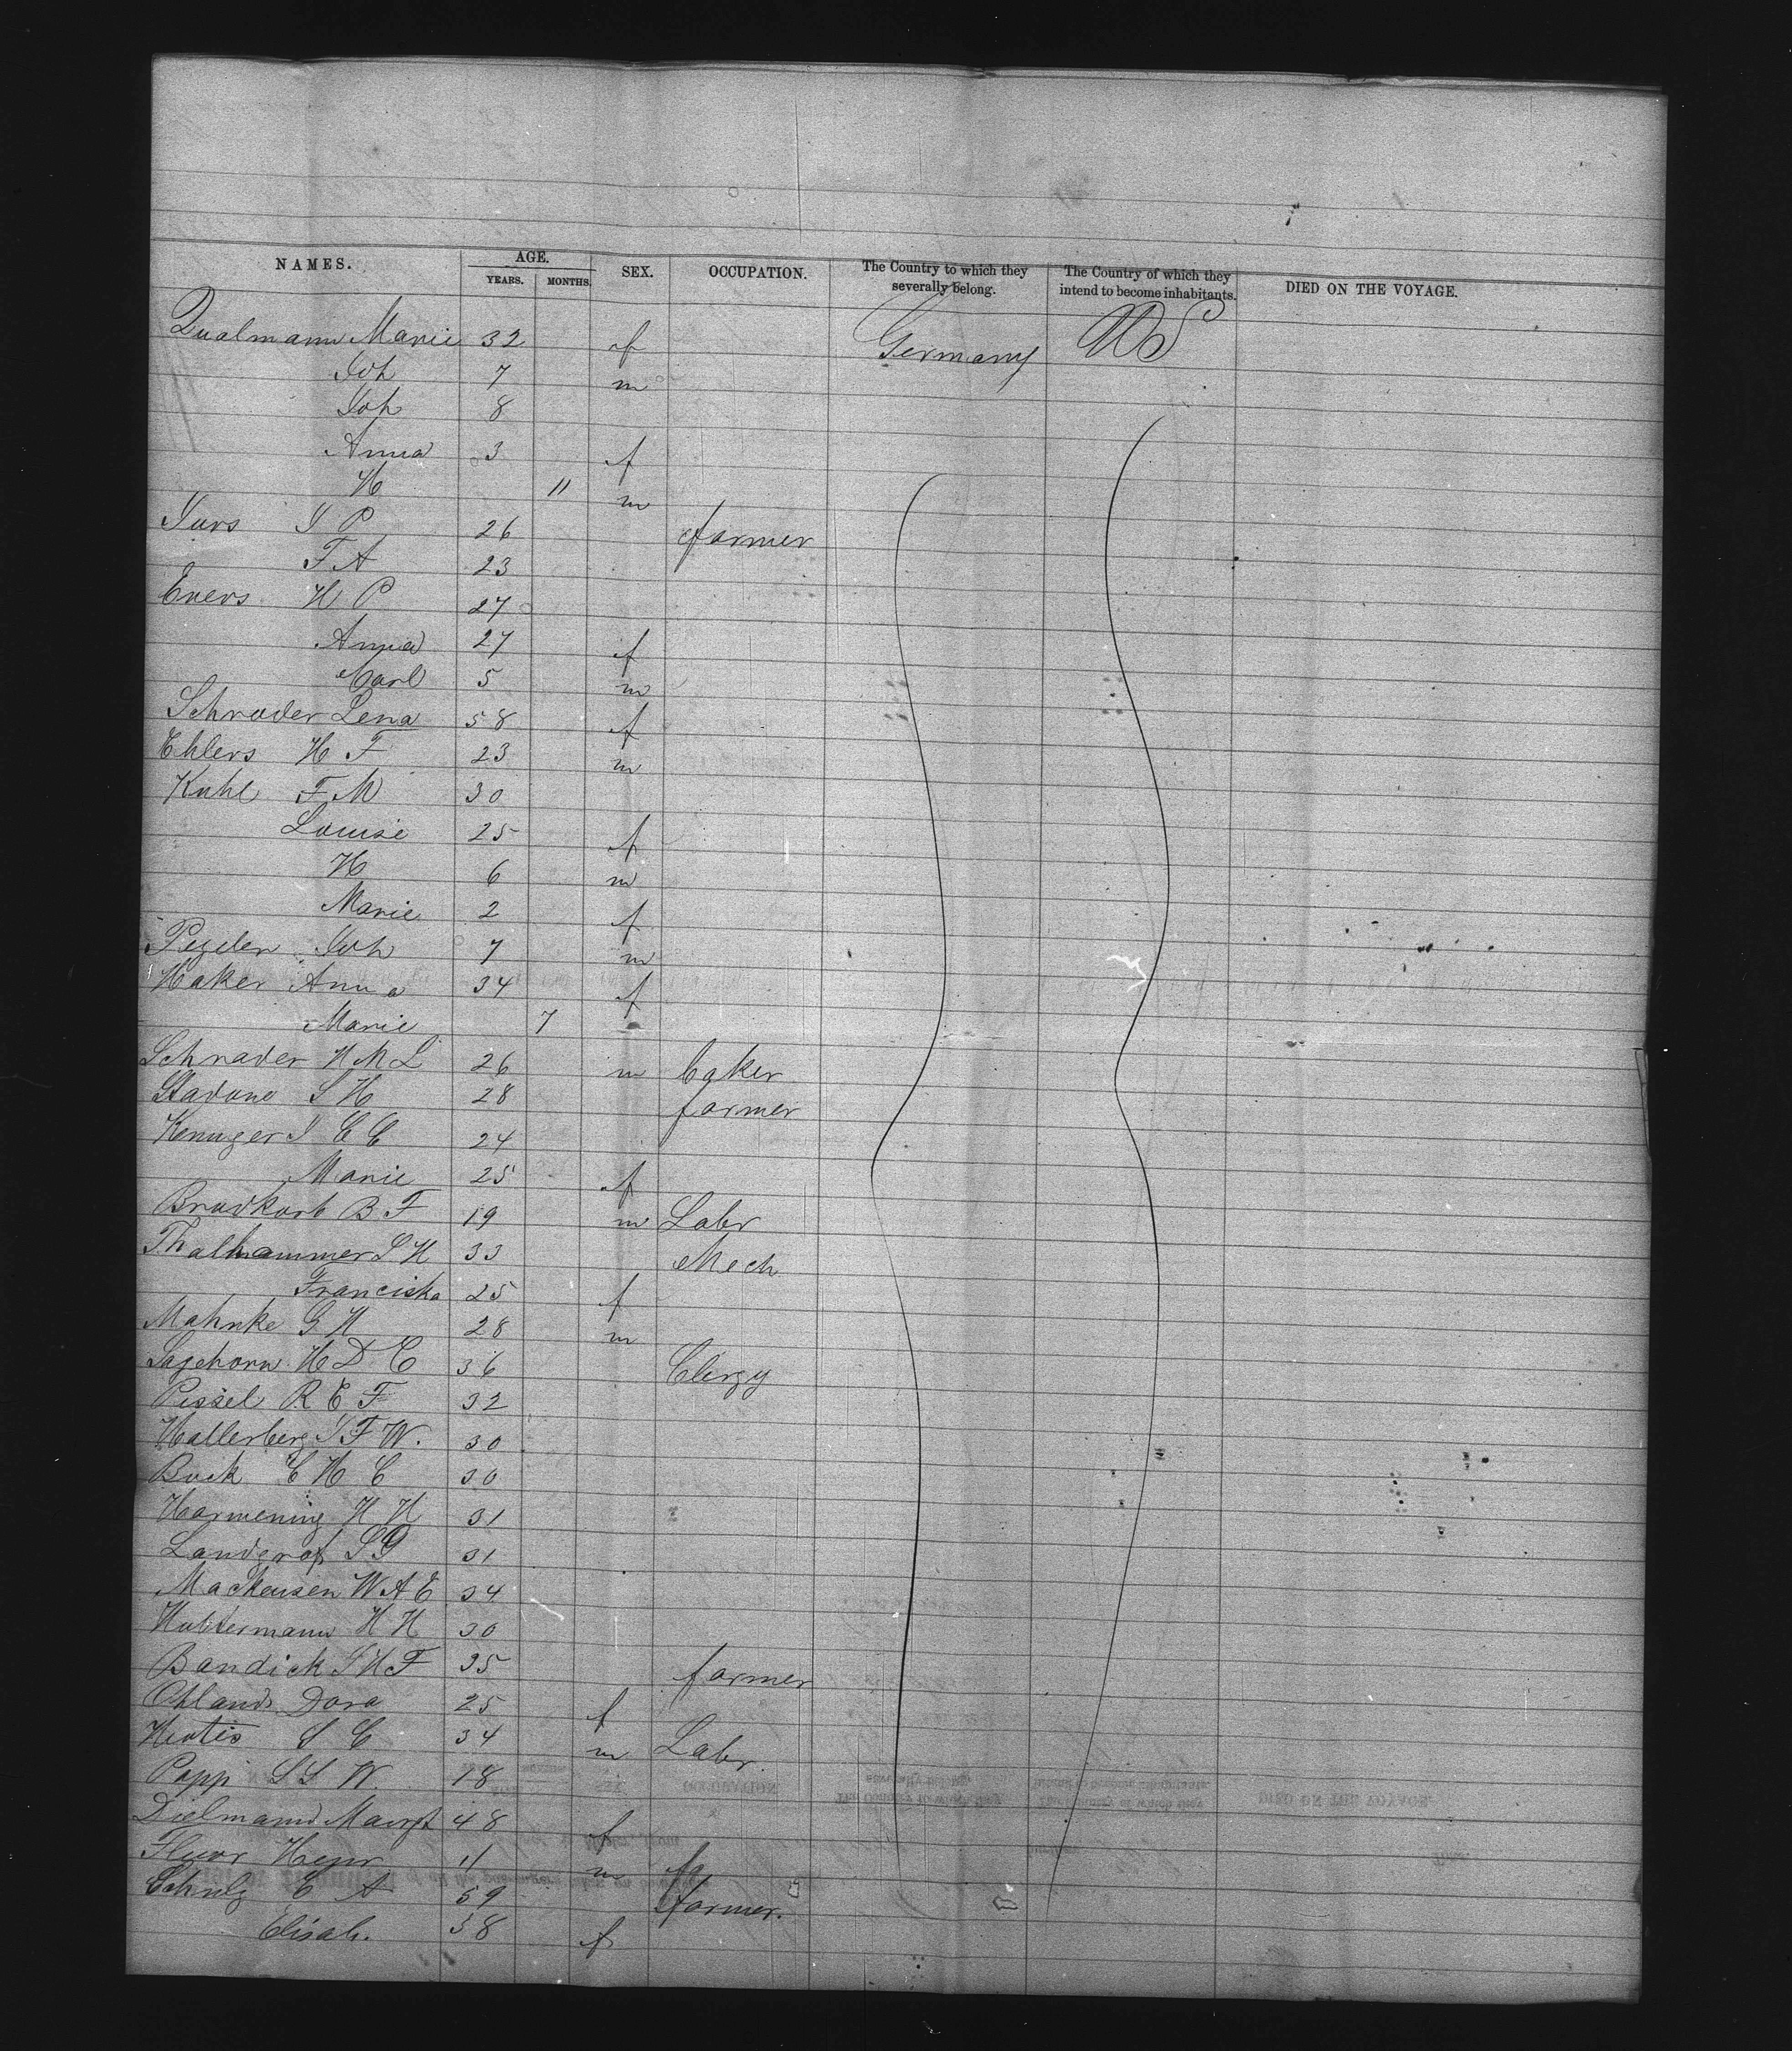 NAMES. AGE. YEARS. MONTHS. SEX. OCCUPATION. The Country to which they severally belong. The Country of which they intend to become inhabitants. DIED ON THE VOYAGE.
Qualmann Marie 32 f Germany US
Joh 7 m
Joh 8
Anna 3 f
H 11 m
Jurs J P 26 farmer
F A 23
Evers H P 27
Anna 27 f
Carl 5 m
Schroder Lena 58 f
Ehlers H F 23 m
Kuhl F M 30
Louise 25 f
H 6 m
Marie 2 f
Joh 7 m
Haker Anna 34 f
Marie 7
Schrader H M L 26 m baker
J H 28 farmer
J C C 24
Marie 25 f
B F 19 m Labr
Thalhammer J H 33 Mech
Franciska 25 f
Mahnke G H 28 m
Sagehorn H D C 36 Clergy
Pissel R E F 32
Hallerberg J F W. 30
Buck C H C 30
Harmening H H 31
Landgraf J G 31
Mackensen W A E 34
H H 30
Bandick J H F 35 farmer
Ohland Dora 25 f
J C 34 m Labr.
Popp W. 18
Dielmann 48 f
11 m
Schulz C A 59 farmer.
Elisab. 58 f